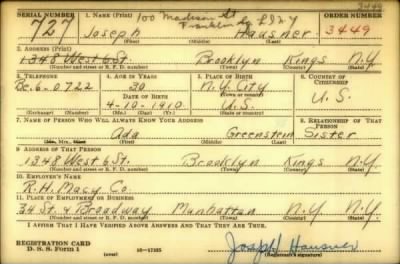 3449
SERIAL NUMBER 1. NAME (Print) 100 Madison St ORDER NUMBER
Franklin Sq
727 Joseph Hausner 3449
(First) (Middle) (Last)
2. ADDRESS (Print)
1348 West 6 St. Brooklyn Kings N.Y.
(Number and street or R. F. D. number) (Town) (County) (State)
3. TELEPHONE 4. AGE IN YEARS 5. PLACE OF BIRTH 6. COUNTRY OF CITIZENSHIP
Be. 6-0722 30 N.Y. City
DATE OF BIRTH (Town or county) U.S.
4-10-1910 U.S.
(Exchange) (Number) (Mo.) (Day) (Yr.) (State or country)
7. NAME OF PERSON WHO WILL ALWAYS KNOW YOUR ADDRESS 8. RELATIONSHIP OF THAT PERSON
Ada Greenstein Sister
(Mr., Mrs., Miss) (First) (Middle) (Last)
9. ADDRESS OF THAT PERSON
1348 West 6 St. Brooklyn Kings N.Y.
(Number and street or R. F. D. number) (Town) (County) (State)
10. EMPLOYER'S NAME
R. H. Macy Co.
11. PLACE OF EMPLOYMENT OR BUSINESS
34 St. & Broadway Manhattan N.Y. N.Y.
(Number and street or R. F. D. number) (Town) (County) (State)
I AFFIRM THAT I HAVE VERIFIED ABOVE ANSWERS AND THAT THEY ARE TRUE.
REGISTRATION CARD
D. S. S. Form 1 (over) 16-17105 Joseph Hausner
(Registrant's signature)